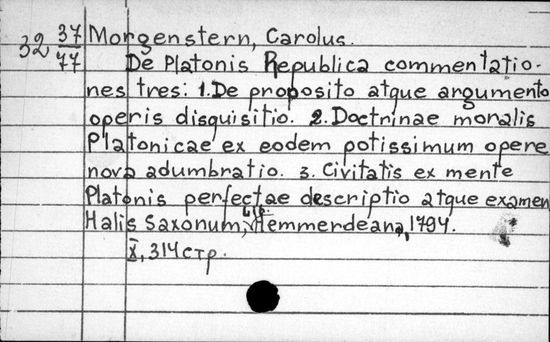 32 37/77 Morgenstern, Carolus.
De Platonis Republica commentatio-
nes tres: 1. De proposito atque argumento
operis disquisitio. 2. Doctrinae moralis
Platonicae ex eodem potissimum opere
nova adumbratio. 3. Civitatis ex mente
Platonis perfectae descriptio atque examen
Halis Saxonum, lib. Hemmerdeana, 1794.
X, 314 стр.